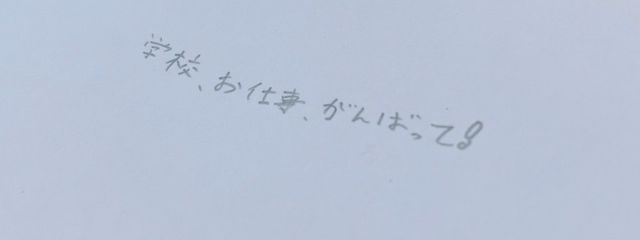 学校、お仕事、がんばって!